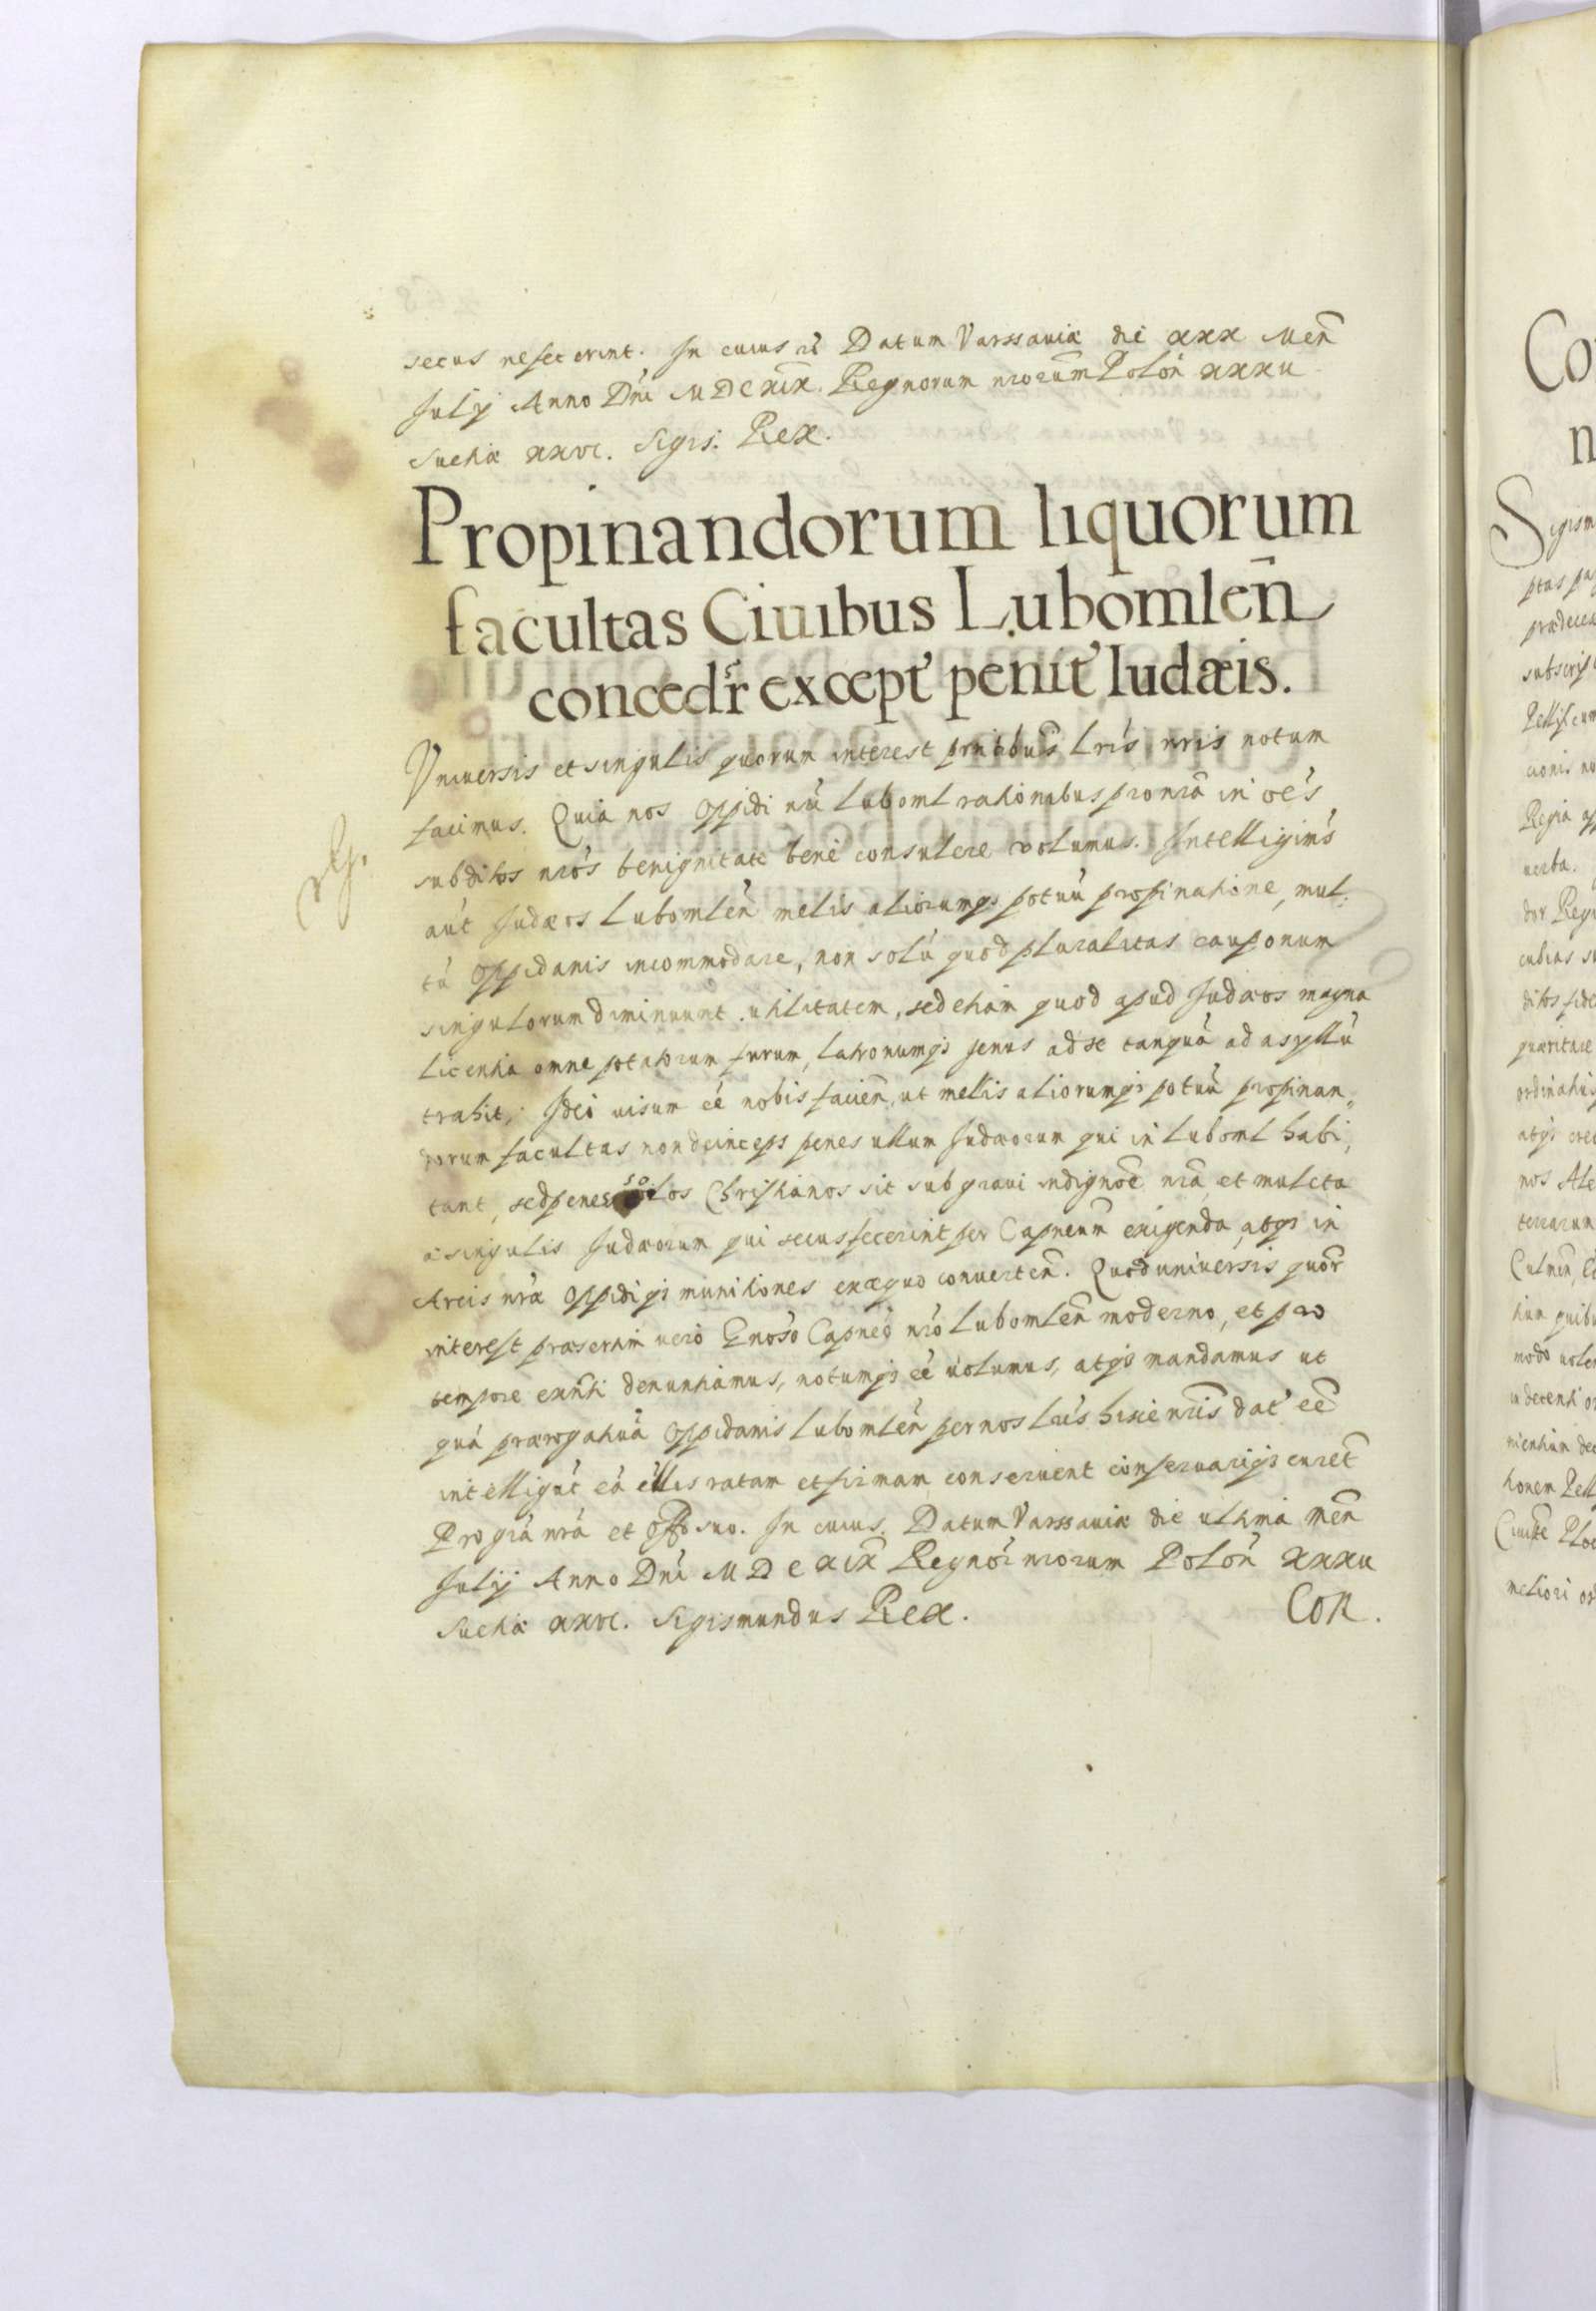 secus ne fecerint. In cuius rei Datum Varssaviæ die xxx Men̄
Julÿ Anno Dn̄i MDCXIX. Regnorum n̄rorum Polon̄ xxxii
Sueciæ xxvi. Sigis. Rex.
Propinandorum liquorum
facultas Ciuibus Lubomlen̄
conced̄r except' penit' Iudæis.
Vniuersis et singulis quorum interest pn̄tibus Lr̄is nr̄is notum
facimus. Quia nos Oppidi nr̄i Luboml rationibus pro nr̄a in oēs
subditos nr̄os benignitate bene consulere volumus. Intelligim's
aūt Judæos Lubomlen̄ melis aliorumq; potuū propinatione, mul:
tū Oppidanis incommodare, non solū quod pluralitas cauponum
singulorum diminuunt utilitatem, sed etiam quod apud Judæos magna
licentia omne potatorum furum, latronumq; genus ad se tanquā ad asyllū
trahit, Ideo uisum ēē nobis facien̄, ut mellis aliorumq; potuū propinan„
dorum facultas non deinceps penes ullum Judæorum qui in Luboml habi,
tant, sed penes solos Christianos sit sub graui indignōe nr̄a, et mulcta
a singulis Judæorum qui secus fecerint per Capneum exigenda, atq; in
Arcis nr̄æ Oppidiq; munitiones ex æquo conuerten̄. Quod uniuersis quor̄
interest præsertim uero Gn̄oso Capneo nr̄o Lubomlen̄ moderno, et pro
tempore exn̄ti denuntiamus, notumq; ēē uolumus, atq; mandamus ut
quā prærogatiuā Oppidanis Lubomlen̄ per nos Lr̄is hisce nr̄is dat' ēē
intelligūt eā illis ratam et firmam conseruent conseruariq; curēt
Pro grā nr̄a et Offō suo. In cuius. Datum Varssaviæ die ultima Men̄
Julÿ Anno Dn̄i MDCXIX Regnor̄ n̄rorum Polon̄ xxxii
Sueciæ xxvi. Sigismundus Rex.
Con.